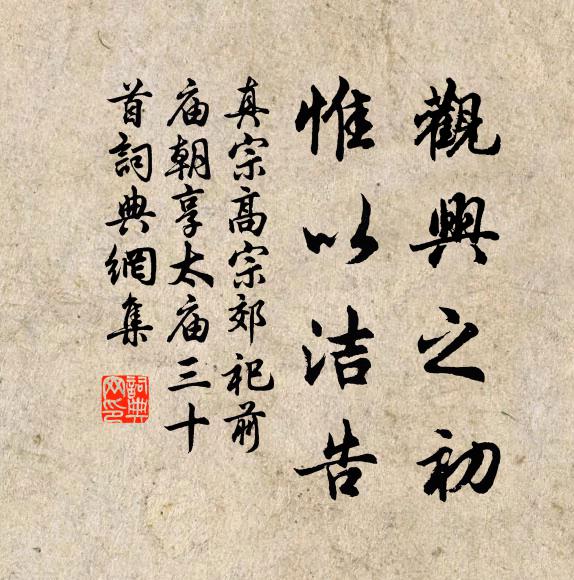 觀興之初
惟以洁告
真宗高宗郊祀前
庙朝享太庙三十
首詞典網集
詞典
网印